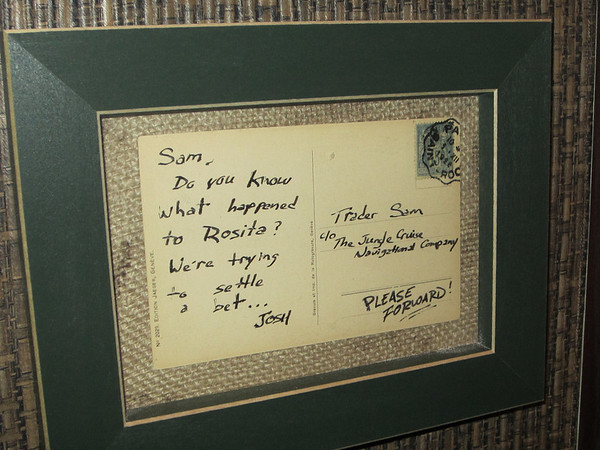 Sam,
Do you know
what happened
to Rosita?
We're trying
to settle
a bet...
JOSH
Trader Sam
c/o The Jungle Cruise
Navigational Company
PLEASE
FORWARD!